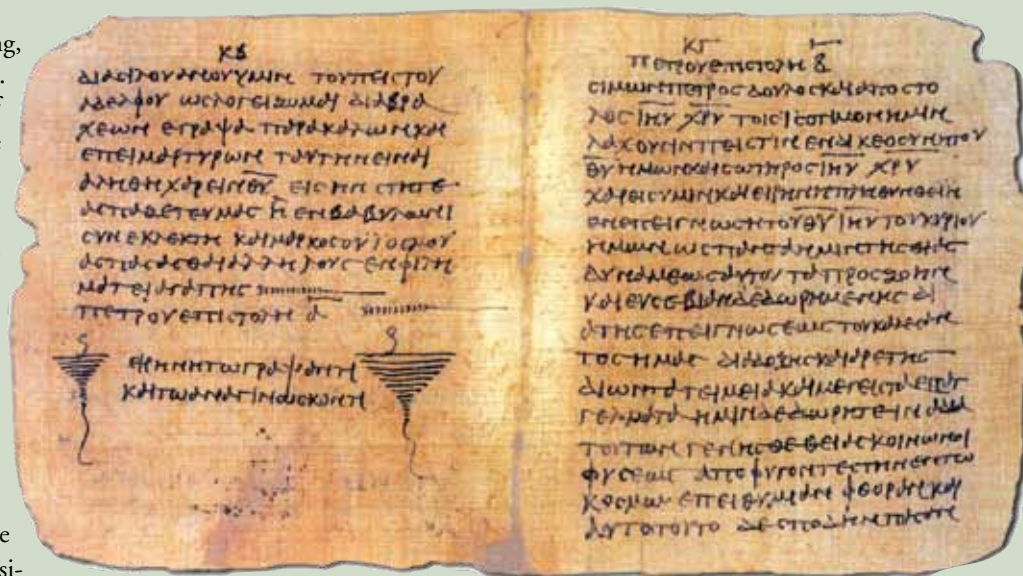 ng,
ΚΒ
ΔΙΑΣΙΛΟΥΑΝΟΥΥΜΙΝ ΤΟΥΠΕΙΣΤΟΥ
ΑΔΕΛΦΟΥ ΩΣΛΟΓΕΙΖΟΜΑΙ ΔΙΑΒΡΑ
ΧΕΩΝ ΕΓΡΑΨΑ ΠΑΡΑΚΑΛΩΝΚΑΙ
ΕΠΕΙΜΑΡΤΥΡΩΝ ΤΑΥΤΗΝΕΙΝΑΙ
ΑΛΗΘΗΧΑΡΕΙΝΘΥ ΕΙΣΗΝ ΣΤΗΤΕ
ΑΣΠΑΖΕΤΕΥΜΑΣ Η ΕΝΒΑΒΥΛΩΝΙ
ΣΥΝΕΚΛΕΚΤΗ ΚΑΙΜΑΡΚΟΣΟΥΙΟΣΜΟΥ
ΑΣΠΑΣΑΣΘΑΙΑΛΛΗΛΟΥΣ ΕΝΦΙΛΗ
ΜΑΤΕΙΑΓΑΠΗΣ
ΠΕΤΡΟΥΕΠΙΣΤΟΛΗ Α
ΕΙΡΗΝΗΤΩΓΡΑΨΑΝΤΙ
ΚΑΙΤΩΑΝΑΓΙΝΩΣΚΟΝΤΙ
e
si-
ΚΓ
ΠΕΤΡΟΥΕΠΙΣΤΟΛΗ Β
ΣΙΜΩΝΠΕΤΡΟΣ ΔΟΥΛΟΣΚΑΙΑΠΟΣΤΟ
ΛΟΣ ΙΗΥ ΧΡΥ ΤΟΙΣΙΣΟΤΙΜΟΝΗΜΙΝ
ΛΑΧΟΥΣΙΝΠΕΙΣΤΙΝ ΕΝΔΙΚΕΟΣΥΝΗΤΟΥ
ΘΥ ΗΜΩΝΚΑΙΣΩΤΗΡΟΣ ΙΗΥ ΧΡΥ
ΧΑΡΕΙΣΥΜΙΝΚΑΙΕΙΡΗΝΗΠΛΗΘΥΝΘΕΙΗ
ΕΝΕΠΕΙΓΝΩΣΗΤΟΥΘΥ ΙΗΥΤΟΥΚΥΡΙΟΥ
ΗΜΩΝ ΩΣΠΑΝΤΑΗΜΙΝΤΗΣΘΕΙΑΣ
ΔΥΝΑΜΕΩΣΑΥΤΟΥ ΤΑΠΡΟΣΖΩΗΝ
ΚΑΙΕΥΣΕΒΙΑΝΔΕΔΩΡΗΜΕΝΗΣ ΔΙ
ΑΤΗΣΕΠΕΙΓΝΩΣΕΩΣΤΟΥΚΑΛΕΣΑΝ
ΤΟΣΗΜΑΣ ΔΙΑΔΟΞΗΣΚΑΙΑΡΕΤΗΣ
ΔΙΩΝΤΑΤΕΙΜΕΙΑΚΑΙΜΕΓΕΙΣΤΑΕΠΑΓ
ΓΕΛΜΑΤΑ ΗΜΙΝΔΕΔΩΡΗΤΕΙΝΑΔΙΑ
ΤΟΥΤΩΝ ΓΕΝΗΣΘΕΘΕΙΑΣΚΟΙΝΩΝΟΙ
ΦΥΣΕΩΣ ΑΠΟΦΥΓΟΝΤΕΣΤΗΝΕΝΤΩ
ΚΟΣΜΩ ΕΠΕΙΘΥΜΙΑΝ ΦΘΟΡΑΝΚΑΙ
ΑΥΤΟΤΟΥΤΟ ΔΕΣΠΟΔΗΝΠΑΣΑΝ